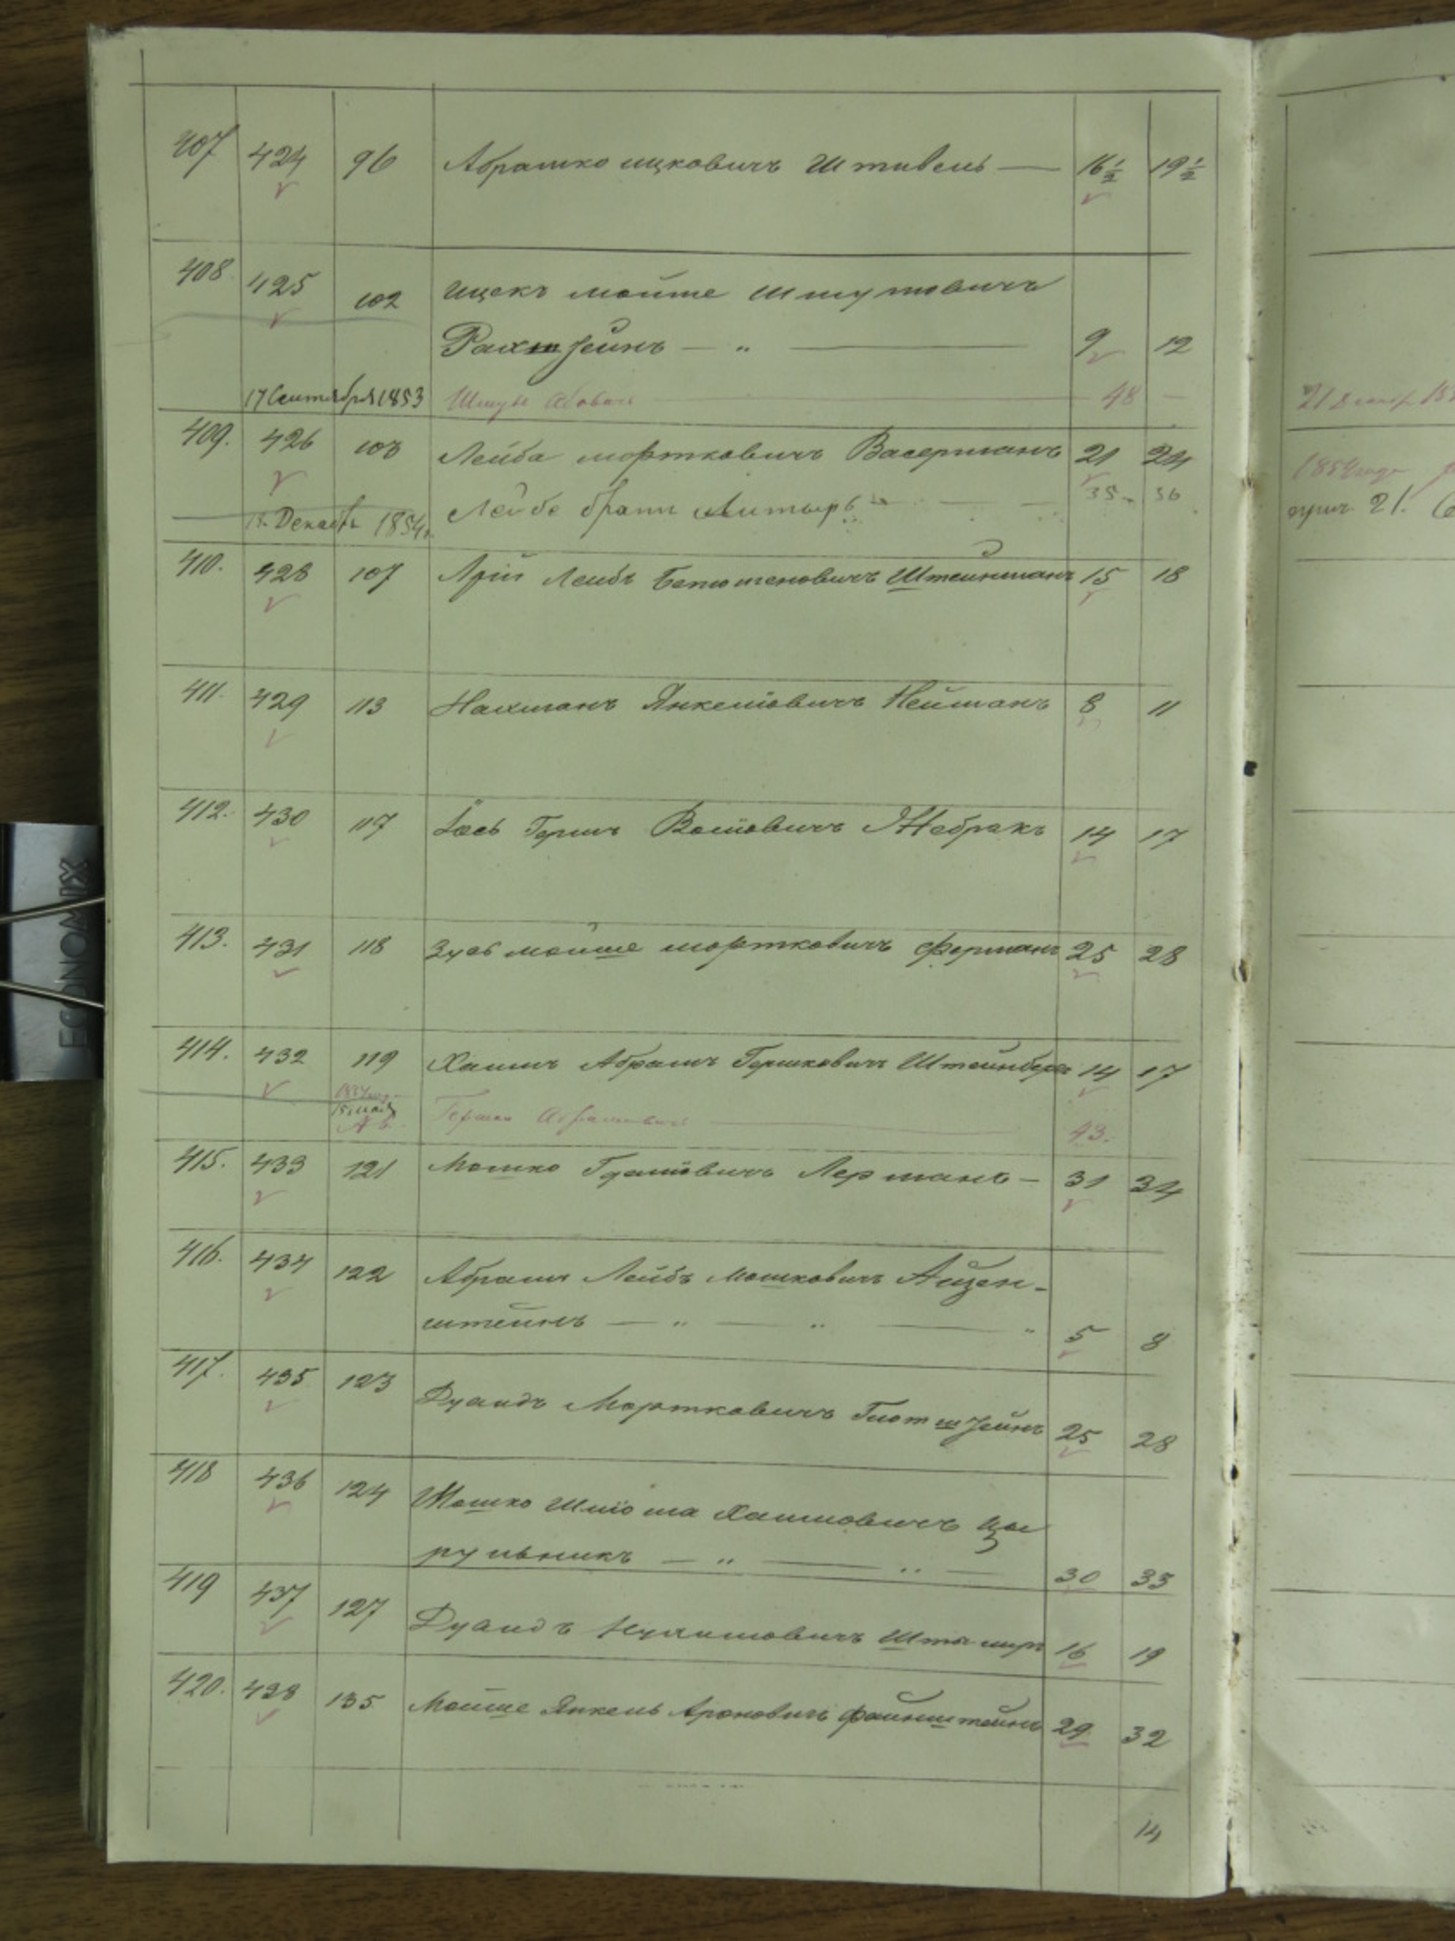 407 424 96 Абрамко ицковичъ Штивель — 16½ 19½
408 425 102 Ицекъ Мойше Шмулевичъ
Рахштейнъ — „ — 9 12
17 Сентября 1853 Шмуль 48 —
21 Декабр.
409. 426 103 Лейба Мортковичъ Васерманъ 21 24
1854 года
Декабр 1854 г. Лейбе братъ 35 36
21.
410. 428 107 Лейбъ Штейнманъ 15 18
411. 429 113 Нахманъ Янкелiовичъ Нейманъ 8 11
412. 430 117 Iось Гершъ Волiовичъ Жебракъ 14 17
413. 431 118 Зусь Мойше Мортковичъ Ферманъ 25 28
414. 432 119 Хаимъ Абрамъ Гершковичъ Штейнберг 14 17
Гершко Абрамовичъ — 43.
415. 433 121 Мошко Лерманъ — 31 34
416. 434 122 Абрамъ Лейбъ Мошковичъ Айзен-
штейнъ — „ — „ — „ 5 8
417. 435 123 Дувидъ Мортковичъ Глотштейнъ 25 28
418 436 124 Мошко Шлiома Хаимовичъ Цы
рульникъ — „ — „ — 30 33
419 437 127 Дувидъ 16 19
420. 438 135 Мойше Янкель Ароновичъ Файнштейнъ 29 32
14
ECONOMIX